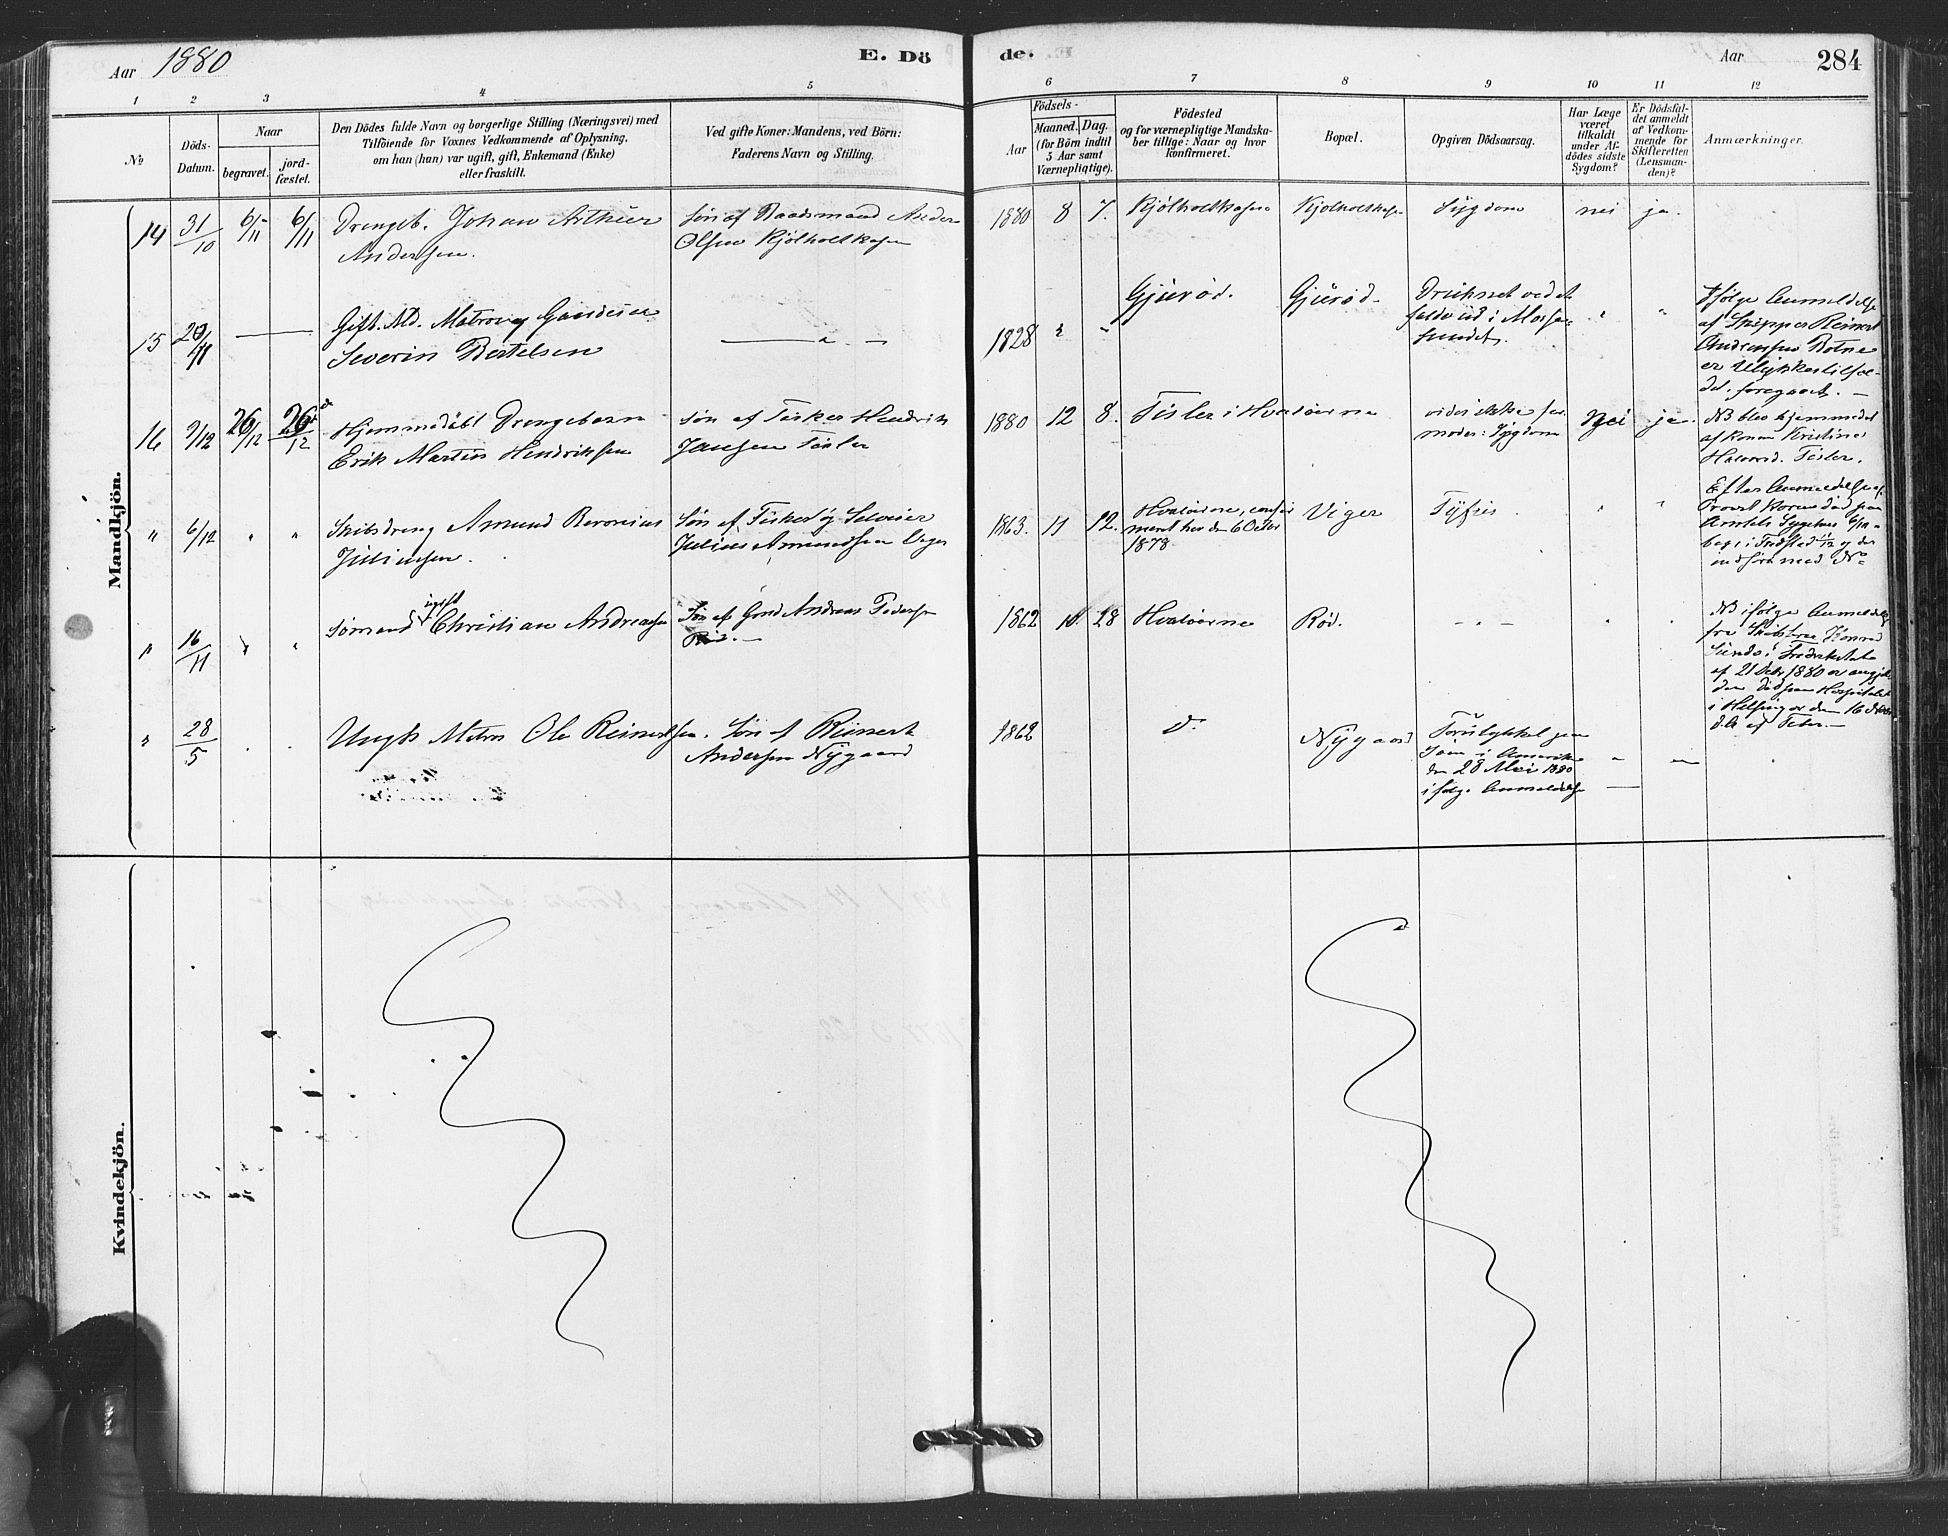 Aar 1880 E. Dö de. Aar 284
1 2 3 4 5 6 7 8 9 10 11 12
No
Döds-
Datum.
Naar
begravet.
jord-
fæstet.
Den Dödes fulde Navn og borgerlige Stilling (Næringsvei) med
Tilföiende for Voxnes Vedkommende af Oplysning,
om han (hun) var ugift, gift, Enkemand (Enke)
eller fraskilt.
Ved gifte Koner: Mandens, ved Börn:
Faderens Navn og Stilling.
Födsels-
Aar
Maaned. Dag.
(for Börn indtil
5 Aar samt
Værnepligtige).
Födested
og for værnepligtige Mandska-
ber tillige: Naar og hvor
konfirmeret.
Bopæl.
Opgiven Dödsaarsag.
Har Læge
været
tilkaldt
under Af-
dödes sidste
Sygdom?
Er Dödsfal-
det anmeldt
af Vedkom-
mende for
Skifteretten
(Lensman-
den)?
Anmærkninger.
Mandkjön.
14 31/10 6/11 6/11 Drengeb. Johan Arthur
Andersen.
Søn af Baadsmand Anders
Olsen Kjølholtkasen
1880 8 7. Kjølholtkasen Kjølholtkasen Sygdom nei ja.
15 29/11 Gift. Md. Matros
Severin Bertelsen
1828 " " Gjurød. Gjurød.
Druknet ved at
falde ud i Mosse-
sundet.
" "
Ifølge Anmeldelse
af Skipper Reinert
Andersen Botne
er Ulykkestilfæl-
det foregaaet. –
16 9/12 26/12 26/12 Hjemmedøbt Drengebarn
Erik Martin Hendriksen
Søn af Fisker Hendrik
Jansen Tisler
1880 12 8. Tisler i Hvaløerne
Sygdom Nei ja.
NB blev hjemmedøbt
af Konen Kristine
Halvorsd. Tisler.
" 6/12 " " Skibsdreng Amund Beronius
Juliussen.
Søn af Fisker og Selveier
Julius Amundsen Viger
1863. 11 12. Hvaløerne, confir
meret her den 6 Octbr
1878.
Viger Tyfus " "
Efter Anmeldelse af
Provst
Sygehus 6/12
i Fredrikstad 11/12 og der
" 16/11 " " Sømand ugift Christian Andreasen
Søn af Grd Andreas Pedersen
Rød. –
1862 10. 28 Hvaløerne Rød. – " – " "
NB ifølge Anmeldelse
fra
Sunde i Fredrikstad
af 21 Decbr 1880 er angjel-
den død paa Hospitalet
i Helsingør den 16
af Feber.
" 28/5 . . Ungk. Matros Ole Reinertsen.
Søn af Reinert
Andersen Nygaard
1862 D. Nygaard
Forulykket
i Amerika
den 28 Mai 1880
ifølge Anmeldelse
" "
Kvindekjön.